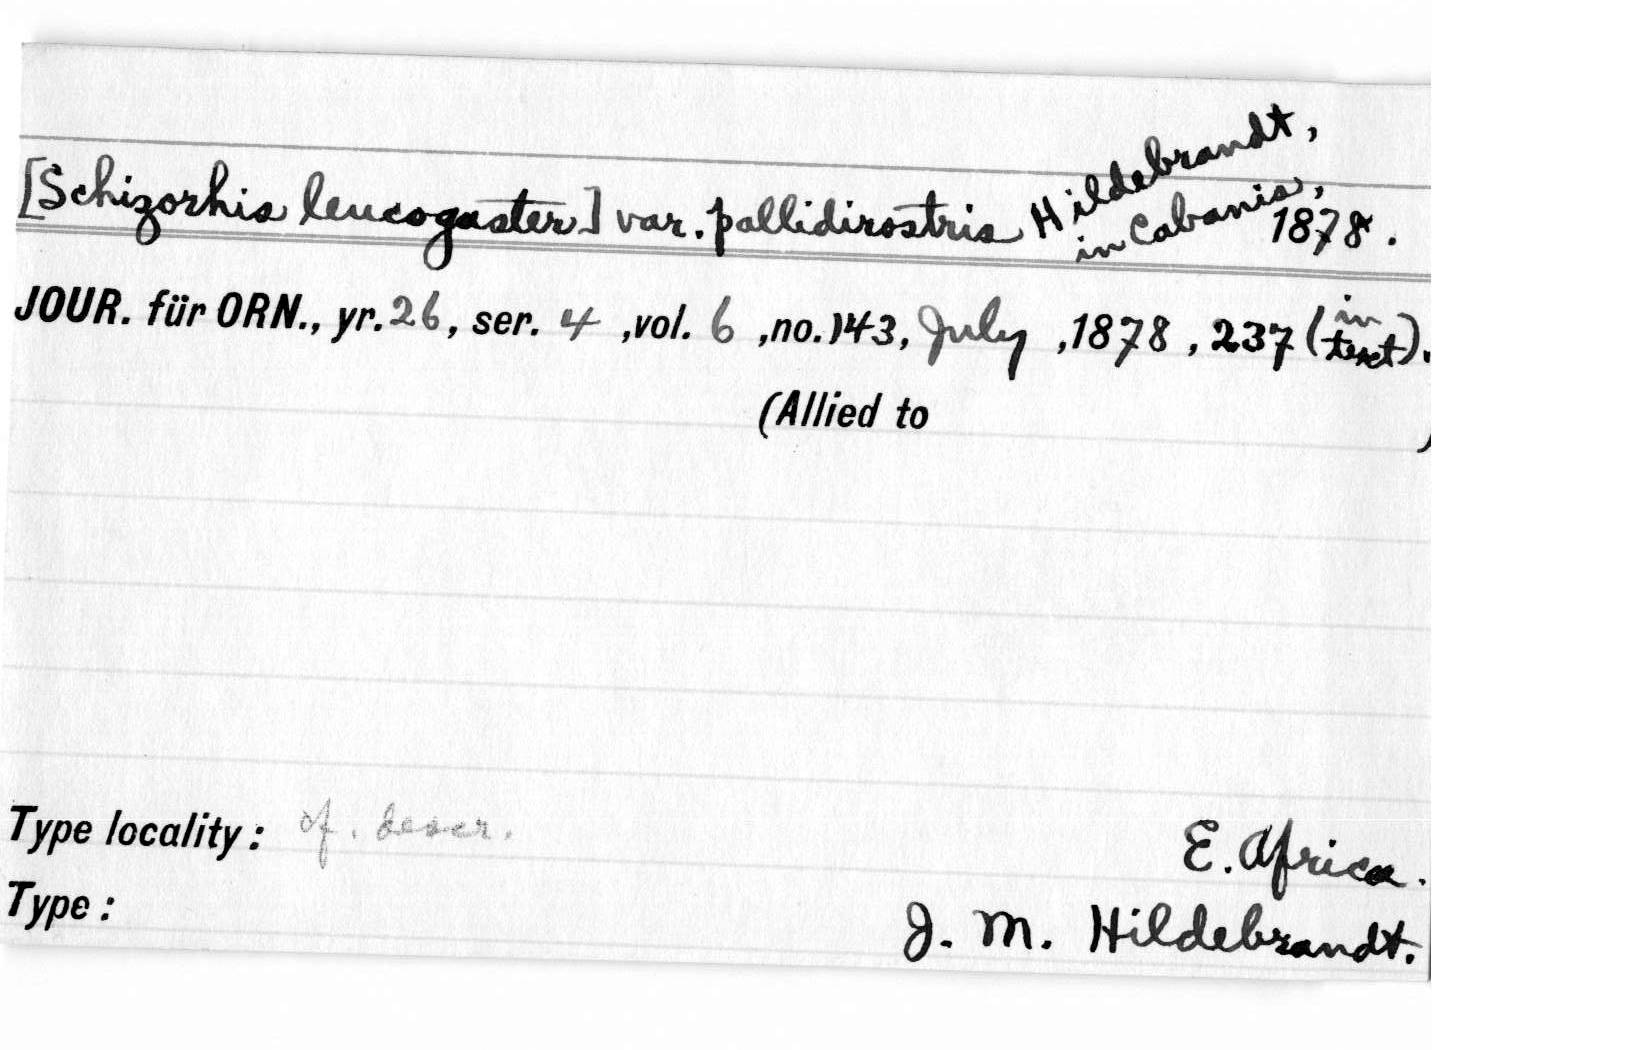 [Schizorhis leucogaster] var. pallidirostris Hildebrandt,
in Cabanis,
1878.
JOUR. für ORN., yr. 26, ser. 4, vol. 6, no. 143, July, 1878, 237 (in text).
(Allied to )
Type locality: cf. descr. E. Africa.
Type: J. M. Hildebrandt.